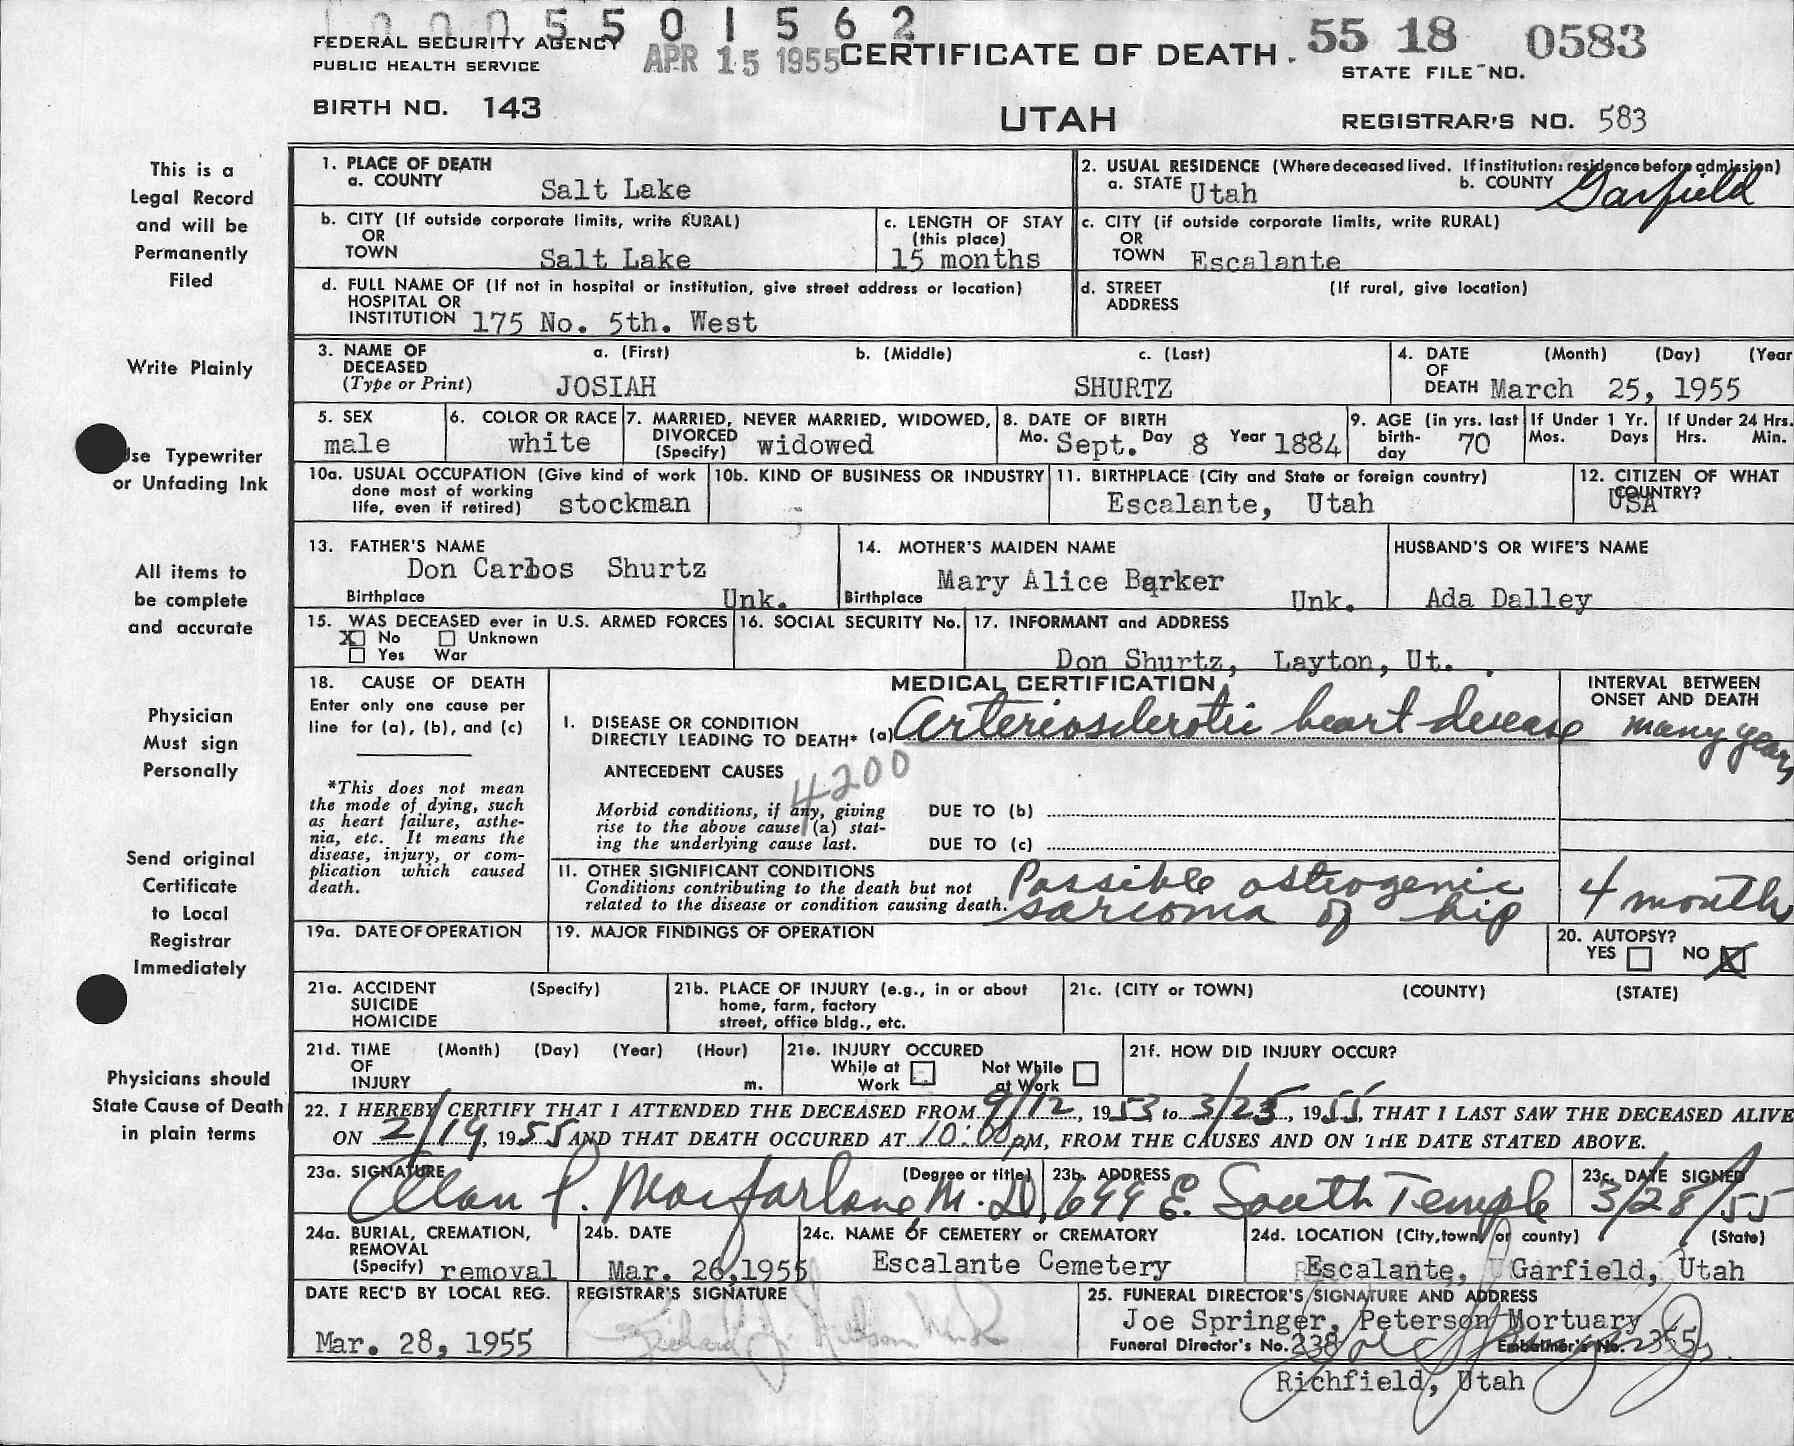 1000 5 5 0 1 5 6 2
FEDERAL SECURITY AGENCY
PUBLIC HEALTH SERVICE
APR 15 1955
CERTIFICATE OF DEATH
55 18 0583
STATE FILE NO.
BIRTH NO. 143
UTAH
REGISTRAR'S NO. 583
This is a
Legal Record
and will be
Permanently
Filed
Write Plainly
Use Typewriter
or Unfading Ink
All items to
be complete
and accurate
Physician
Must sign
Personally
Send original
Certificate
to Local
Registrar
Immediately
Physicians should
State Cause of Death
in plain terms
1. PLACE OF DEATH
a. COUNTY Salt Lake
2. USUAL RESIDENCE (Where deceased lived. If institution: residence before admission)
a. STATE Utah b. COUNTY Garfield
b. CITY (If outside corporate limits, write RURAL)
OR
TOWN Salt Lake
c. LENGTH OF STAY
(this place)
15 months
c. CITY (if outside corporate limits, write RURAL)
OR
TOWN Escalante
d. FULL NAME OF (If not in hospital or institution, give street address or location)
HOSPITAL OR
INSTITUTION 175 No. 5th. West
d. STREET (If rural, give location)
ADDRESS
3. NAME OF a. (First) b. (Middle) c. (Last)
DECEASED
(Type or Print) JOSIAH SHURTZ
4. DATE (Month) (Day) (Year
OF
DEATH March 25, 1955
5. SEX
male
6. COLOR OR RACE
white
7. MARRIED, NEVER MARRIED, WIDOWED,
DIVORCED
(Specify) widowed
8. DATE OF BIRTH
Mo. Sept. Day 8 Year 1884
9. AGE (in yrs. last
birth-
day 70
If Under 1 Yr.
Mos. Days
If Under 24 Hrs.
Hrs. Min.
10a. USUAL OCCUPATION (Give kind of work
done most of working
life, even if retired) stockman
10b. KIND OF BUSINESS OR INDUSTRY
11. BIRTHPLACE (City and State or foreign country)
Escalante, Utah
12. CITIZEN OF WHAT
COUNTRY?
USA
13. FATHER'S NAME
Don Carlos Shurtz
Birthplace Unk.
14. MOTHER'S MAIDEN NAME
Mary Alice Barker
Birthplace Unk.
HUSBAND'S OR WIFE'S NAME
Ada Dalley
15. WAS DECEASED ever in U.S. ARMED FORCES
X No Unknown
Yes War
16. SOCIAL SECURITY No.
17. INFORMANT and ADDRESS
Don Shurtz, Layton, Ut.
18. CAUSE OF DEATH
Enter only one cause per
line for (a), (b), and (c)
*This does not mean
the mode of dying, such
as heart failure, asthe-
nia, etc. It means the
disease, injury, or com-
plication which caused
death.
MEDICAL CERTIFICATION
I. DISEASE OR CONDITION
DIRECTLY LEADING TO DEATH* (a) Arteriosclerotic heart desease
INTERVAL BETWEEN
ONSET AND DEATH
many years
ANTECEDENT CAUSES
4200
Morbid conditions, if any, giving
rise to the above cause (a) stat-
ing the underlying cause last.
DUE TO (b)
DUE TO (c)
11. OTHER SIGNIFICANT CONDITIONS
Conditions contributing to the death but not
related to the disease or condition causing death.
Possible ostrogenic
sarcoma of hip
4 months
19a. DATE OF OPERATION
19. MAJOR FINDINGS OF OPERATION
20. AUTOPSY?
YES NO X
21a. ACCIDENT (Specify)
SUICIDE
HOMICIDE
21b. PLACE OF INJURY (e.g., in or about
home, farm, factory
street, office bldg., etc.
21c. (CITY or TOWN) (COUNTY) (STATE)
21d. TIME (Month) (Day) (Year) (Hour)
OF
INJURY m.
21e. INJURY OCCURED
While at
Work
Not While
at Work
21f. HOW DID INJURY OCCUR?
22. I HEREBY CERTIFY THAT I ATTENDED THE DECEASED FROM 9/12, 1953 to 3/25, 1955, THAT I LAST SAW THE DECEASED ALIVE
ON 2/19, 1955 AND THAT DEATH OCCURED AT 10:00 pM, FROM THE CAUSES AND ON THE DATE STATED ABOVE.
23a. SIGNATURE (Degree or title)
Alan P. Macfarlane M.D.
23b. ADDRESS
699 E. South Temple
23c. DATE SIGNED
3/28/55
24a. BURIAL, CREMATION,
REMOVAL
(Specify) removal
24b. DATE
Mar. 26, 1955
24c. NAME OF CEMETERY or CREMATORY
Escalante Cemetery
24d. LOCATION (City, town, or county) (State)
Escalante, Garfield, Utah
DATE REC'D BY LOCAL REG.
Mar. 28, 1955
REGISTRAR'S SIGNATURE
25. FUNERAL DIRECTOR'S SIGNATURE AND ADDRESS
Joe Springer, Peterson Mortuary
Funeral Director's No. 238 Embalmer's No. 235
Richfield, Utah